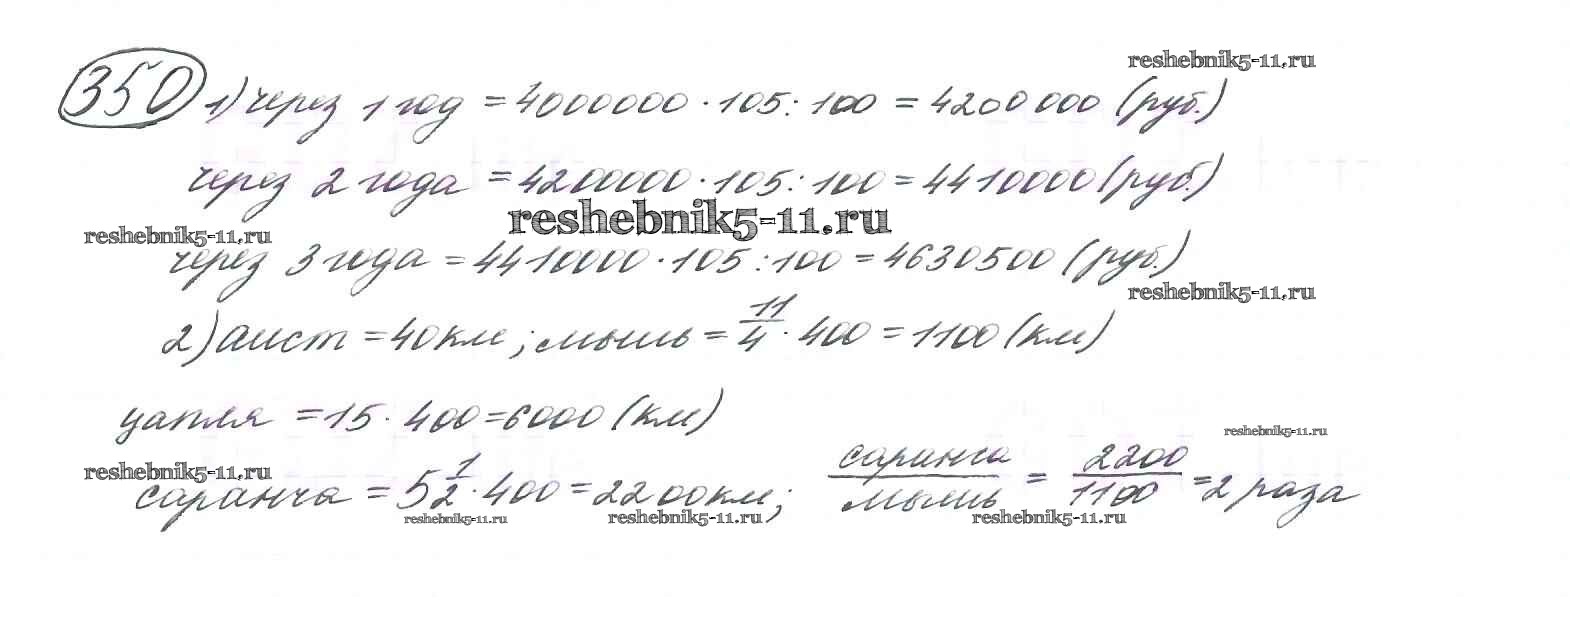 reshebnik5-11.ru
350 1) через 1 год = 4000000 · 105 : 100 = 4200000 (руб.)
через 2 года = 4200000 · 105 : 100 = 4410000 (руб.)
reshebnik5-11.ru
reshebnik5-11.ru
через 3 года = 4410000 · 105 : 100 = 4630500 (руб.)
reshebnik5-11.ru
2) аист = 40 км; мышь = 11/4 · 400 = 1100 (км)
цапля = 15 · 400 = 6000 (км)
reshebnik5-11.ru
reshebnik5-11.ru
саранча = 5 1/2 · 400 = 2200 км; саранча/мышь = 2200/1100 = 2 раза
reshebnik5-11.ru reshebnik5-11.ru reshebnik5-11.ru